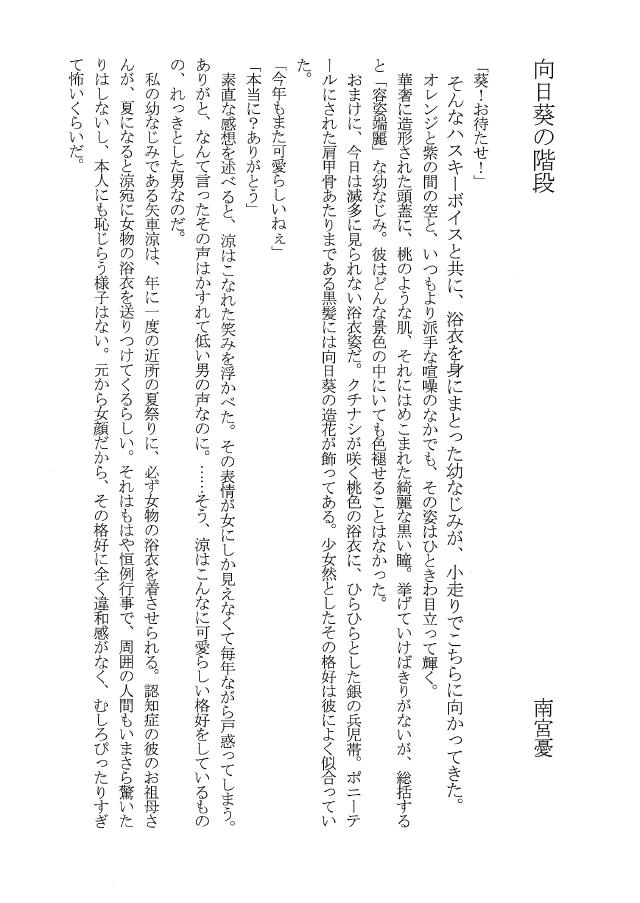 向日葵の階段
南宮憂
「葵！お待たせ！」
そんなハスキーボイスと共に、浴衣を身にまとった幼なじみが、小走りでこちらに向かってきた。
オレンジと紫の間の空と、いつもより派手な喧噪のなかでも、その姿はひときわ目立って輝く。
華奢に造形された頭蓋に、桃のような肌、それにはめこまれた綺麗な黒い瞳。挙げていけばきりがないが、総括する
と「容姿端麗」な幼なじみ。彼はどんな景色の中にいても色褪せることはなかった。
おまけに、今日は滅多に見られない浴衣姿だ。クチナシが咲く桃色の浴衣に、ひらひらとした銀の兵児帯。ポニーテ
ールにされた肩甲骨あたりまである黒髪には向日葵の造花が飾ってある。少女然としたその格好は彼によく似合ってい
た。
「今年もまた可愛らしいねぇ」
「本当に？ありがとう」
素直な感想を述べると、涼はこなれた笑みを浮かべた。その表情が女にしか見えなくて毎年ながら戸惑ってしまう。
ありがと、なんて言ったその声はかすれて低い男の声なのに。……そう、涼はこんなに可愛らしい格好をしているもの
の、れっきとした男なのだ。
私の幼なじみである矢車涼は、年に一度の近所の夏祭りに、必ず女物の浴衣を着させられる。認知症の彼のお祖母さ
んが、夏になると涼宛に女物の浴衣を送りつけてくるらしい。それはもはや恒例行事で、周囲の人間もいまさら驚いた
りはしないし、本人にも恥じらう様子はない。元から女顔だから、その格好に全く違和感がなく、むしろぴったりすぎ
て怖いくらいだ。